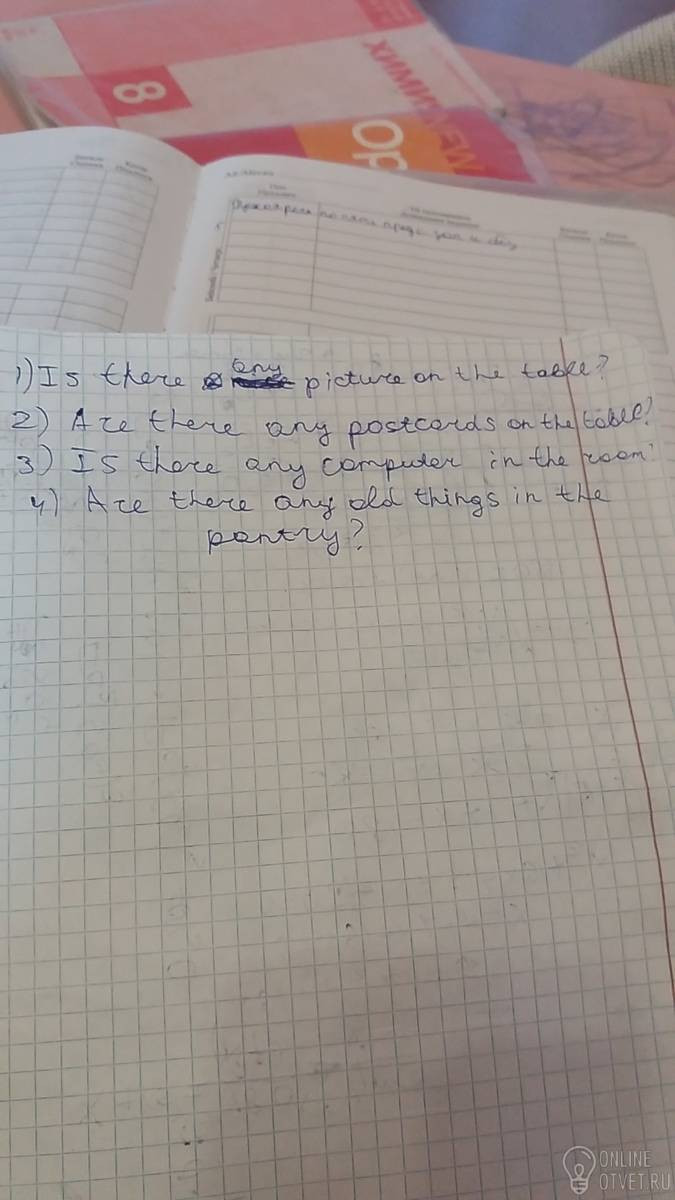 8
ОР
1) Is there any picture on the table?
2) Are there any postcards on the table?
3) Is there any computer in the room?
4) Are there any old things in the
pantry?
ONLINE
OTVET.RU